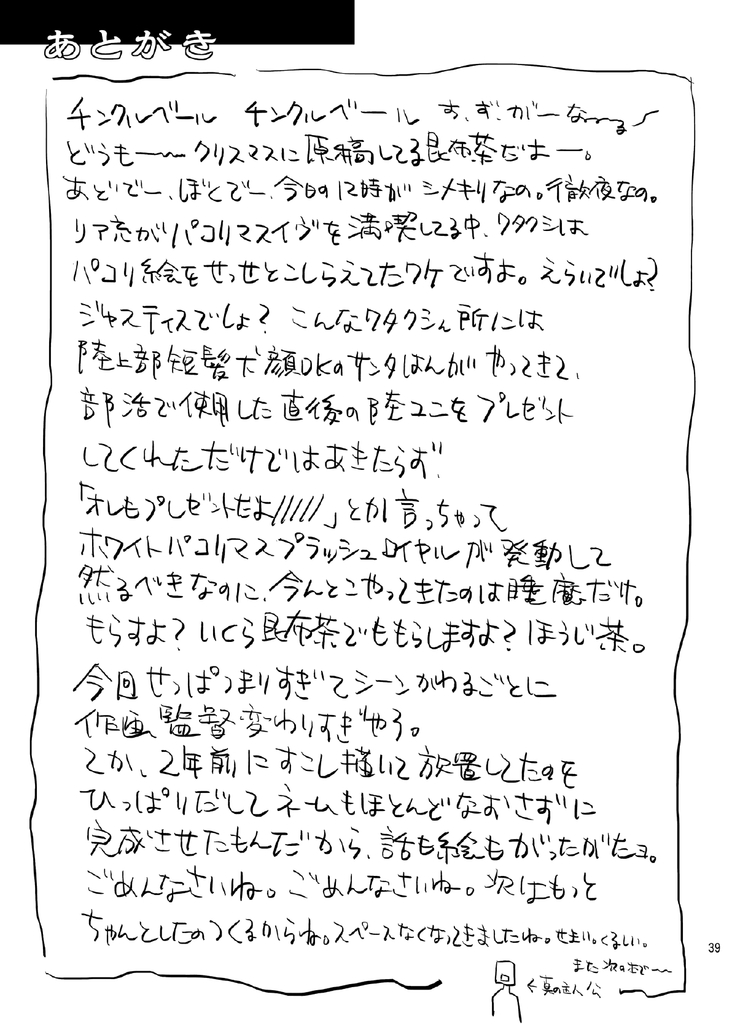 あとがき
チンクルベール チンクルベール す、ず、がーなーーるー
どうもー〜クリスマスに原稿してる昆布茶だよー。
あどでー、ぼとでー、今日の12時がシメキリなの。行徹夜なの。
リア充がパコリマスイヴを満喫してる中、ワタクシは
パコリ絵をせっせとこしらえてたワケですよ。えらいでしょ?
ジャスティスでしょ? こんなワタクシん所には
陸上部短髪犬顔DKのサンタはんがやってきて、
部活で使用した直後の陸ユニをプレゼント
してくれただけではあきたらず、
「オレもプレゼントだよ/////」とか言っちゃって
ホワイトパコリマスプラッシュロイヤルが発動して
然るべきなのに、今んとこやってきたのは睡魔だけ。
もらすよ? いくら昆布茶でももらしますよ? ほうじ茶。
今回せっぱつまりすぎてシーンかわるごとに
作画監督変わりすぎやろ。
てか、2年前にすこし描いて放置してたのを
ひっぱりだしてネームもほとんどなおさずに
完成させたもんだから、話も絵もがったがたョ。
ごめんなさいね。ごめんなさいね。次はもっと
ちゃんとしたのつくるからね。スペースなくなってきましたね。せまい。くるしい。
また次の本で〜〜
←真の主人公
39